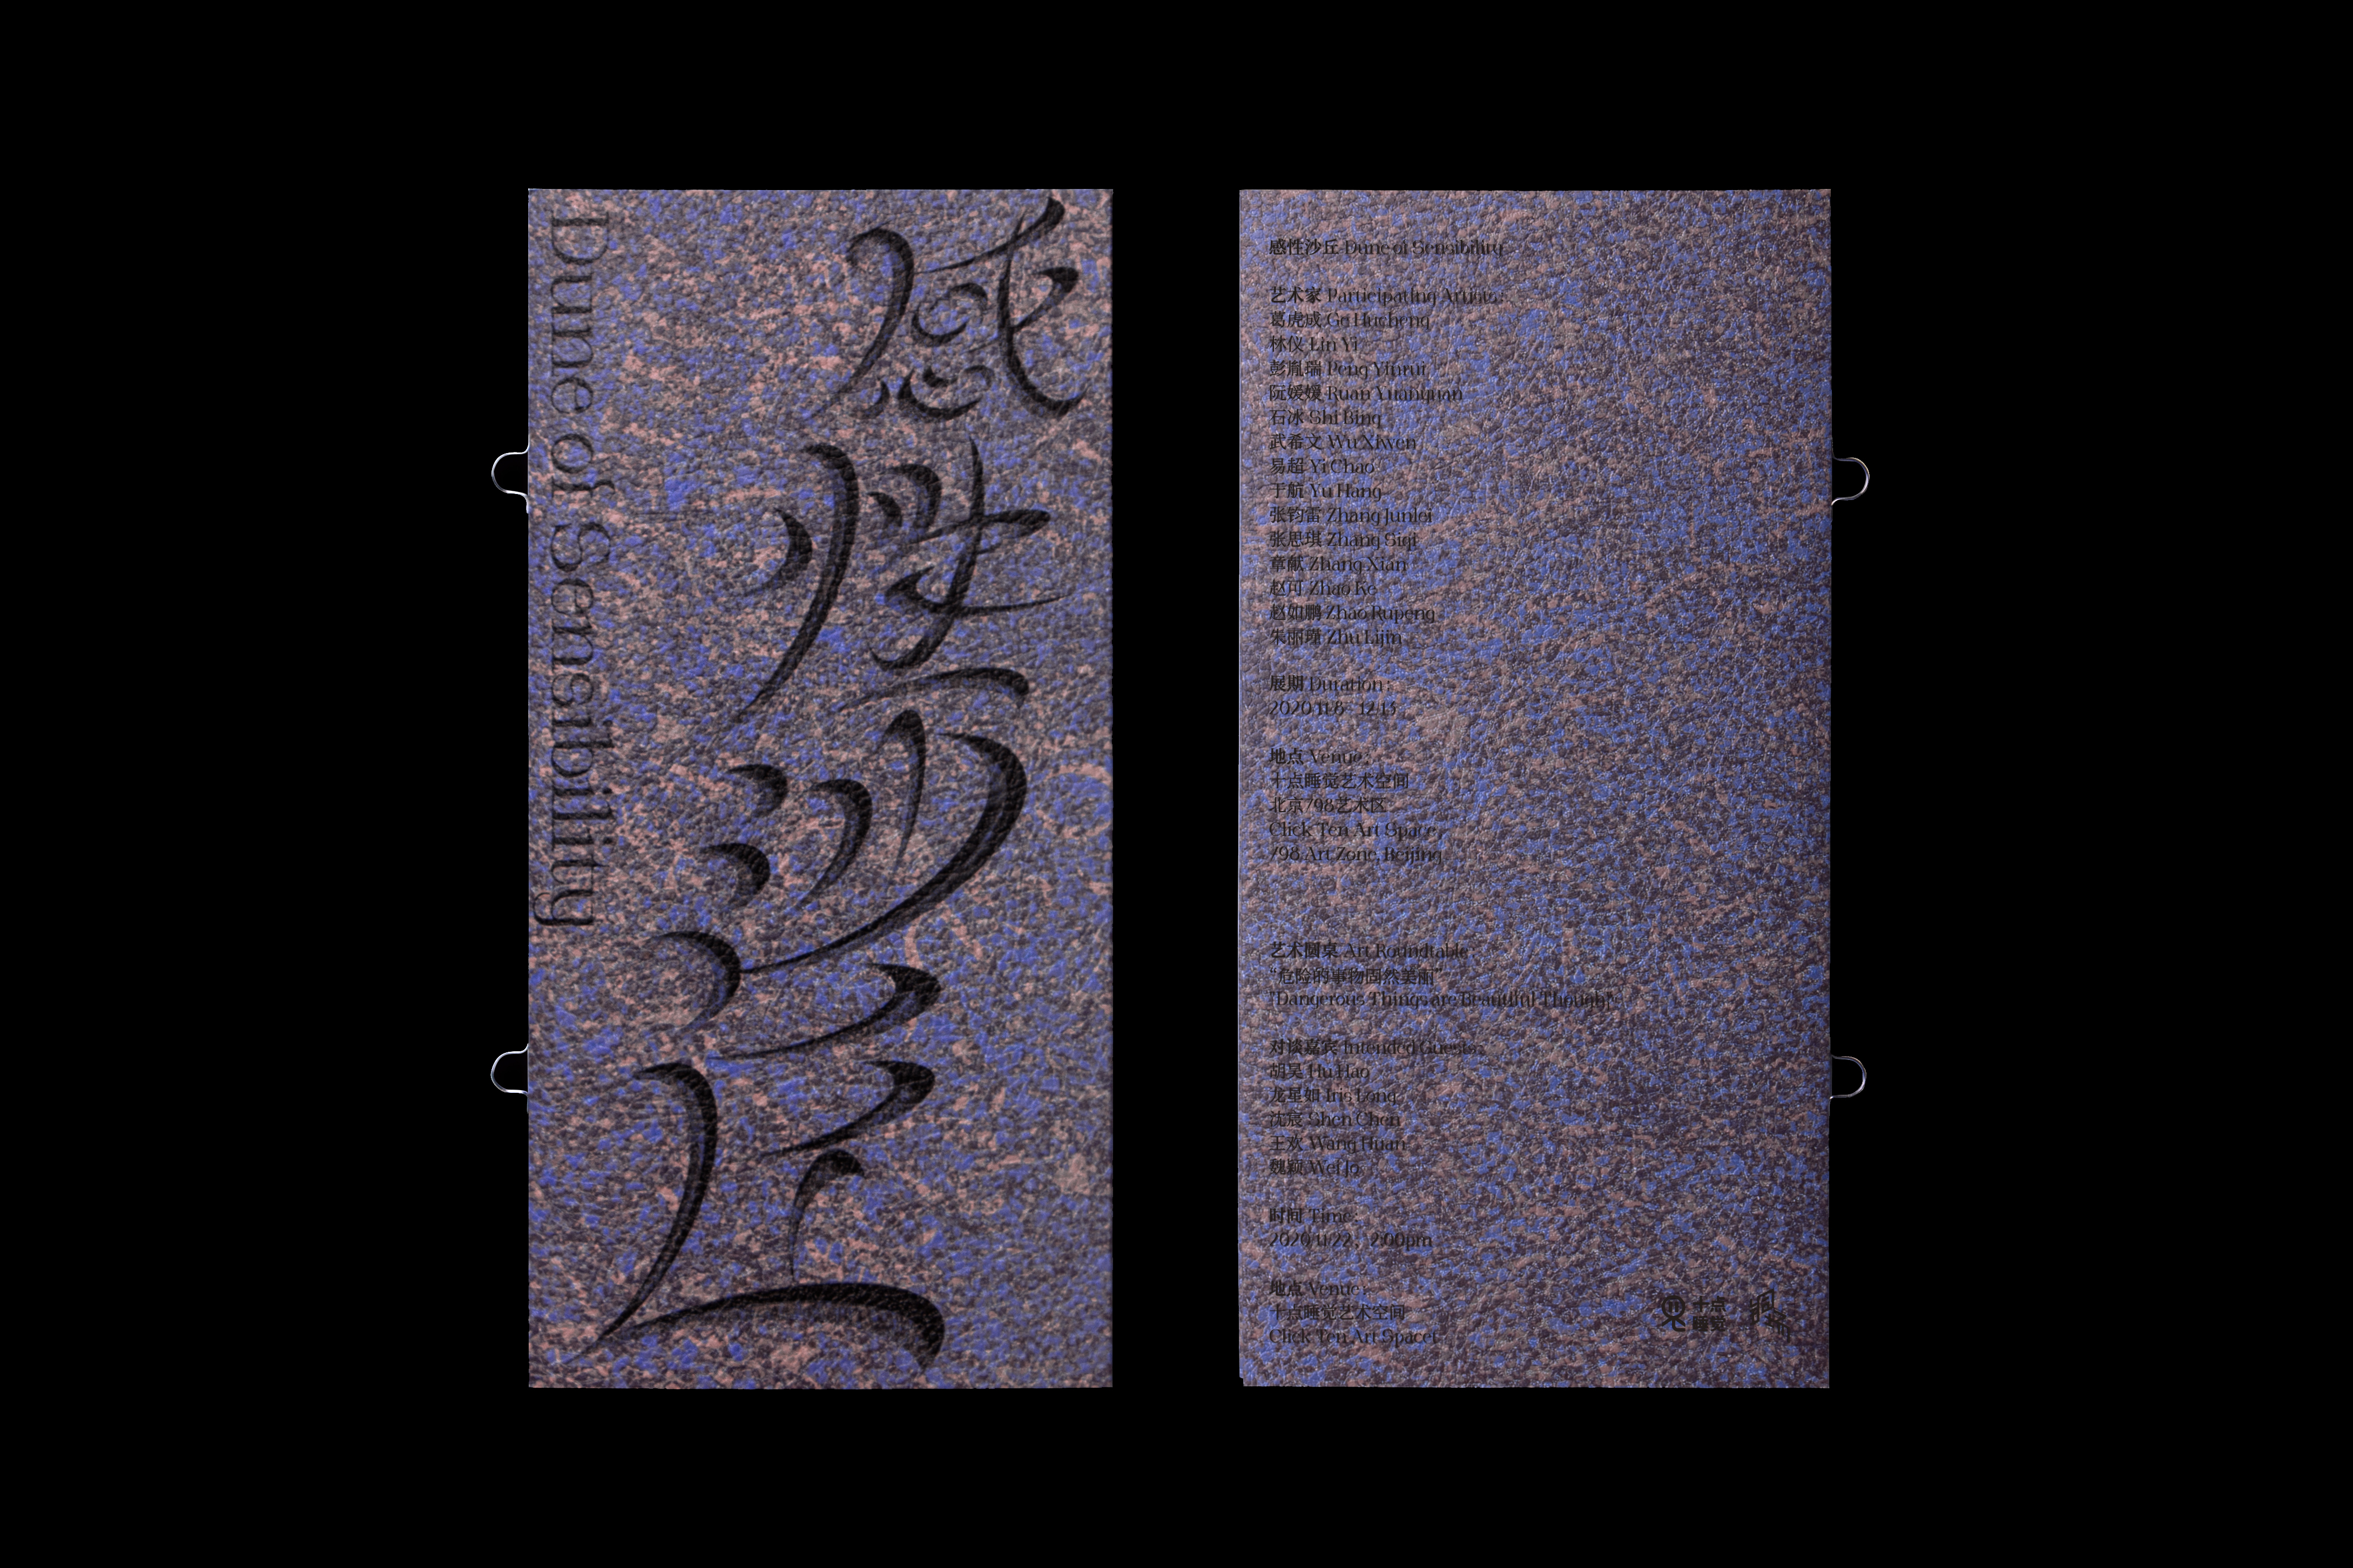 感性沙丘
Dune of Sensibility
感性沙丘 Dune of Sensibility
艺术家 Participating Artists:
葛虎成 Ge Hucheng
林仪 Lin Yi
彭胤瑞 Peng Yinrui
阮媛媛 Ruan Yuanyuan
石冰 Shi Bing
武希文 Wu Xiwen
易超 Yi Chao
于航 Yu Hang
张钧雷 Zhang Junlei
张思琪 Zhang Siqi
章献 Zhang Xian
赵可 Zhao Ke
赵如鹏 Zhao Rupeng
朱丽瑾 Zhu Lijin
展期 Duration:
2020.11.8 - 12.13
地点 Venue:
十点睡觉艺术空间
北京798艺术区
Click Ten Art Space
798 Art Zone, Beijing
艺术圆桌 Art Roundtable:
“危险的事物固然美丽”
"Dangerous Things are Beautiful Though"
对谈嘉宾 Intended Guests:
胡昊 Hu Hao
龙星如 Iris Long
沈宸 Shen Chen
王欢 Wang Huan
魏颖 Wei
时间 Time:
2020.11.22, 2:00pm
地点 Venue:
十点睡觉艺术空间
Click Ten Art Space
十点
睡觉